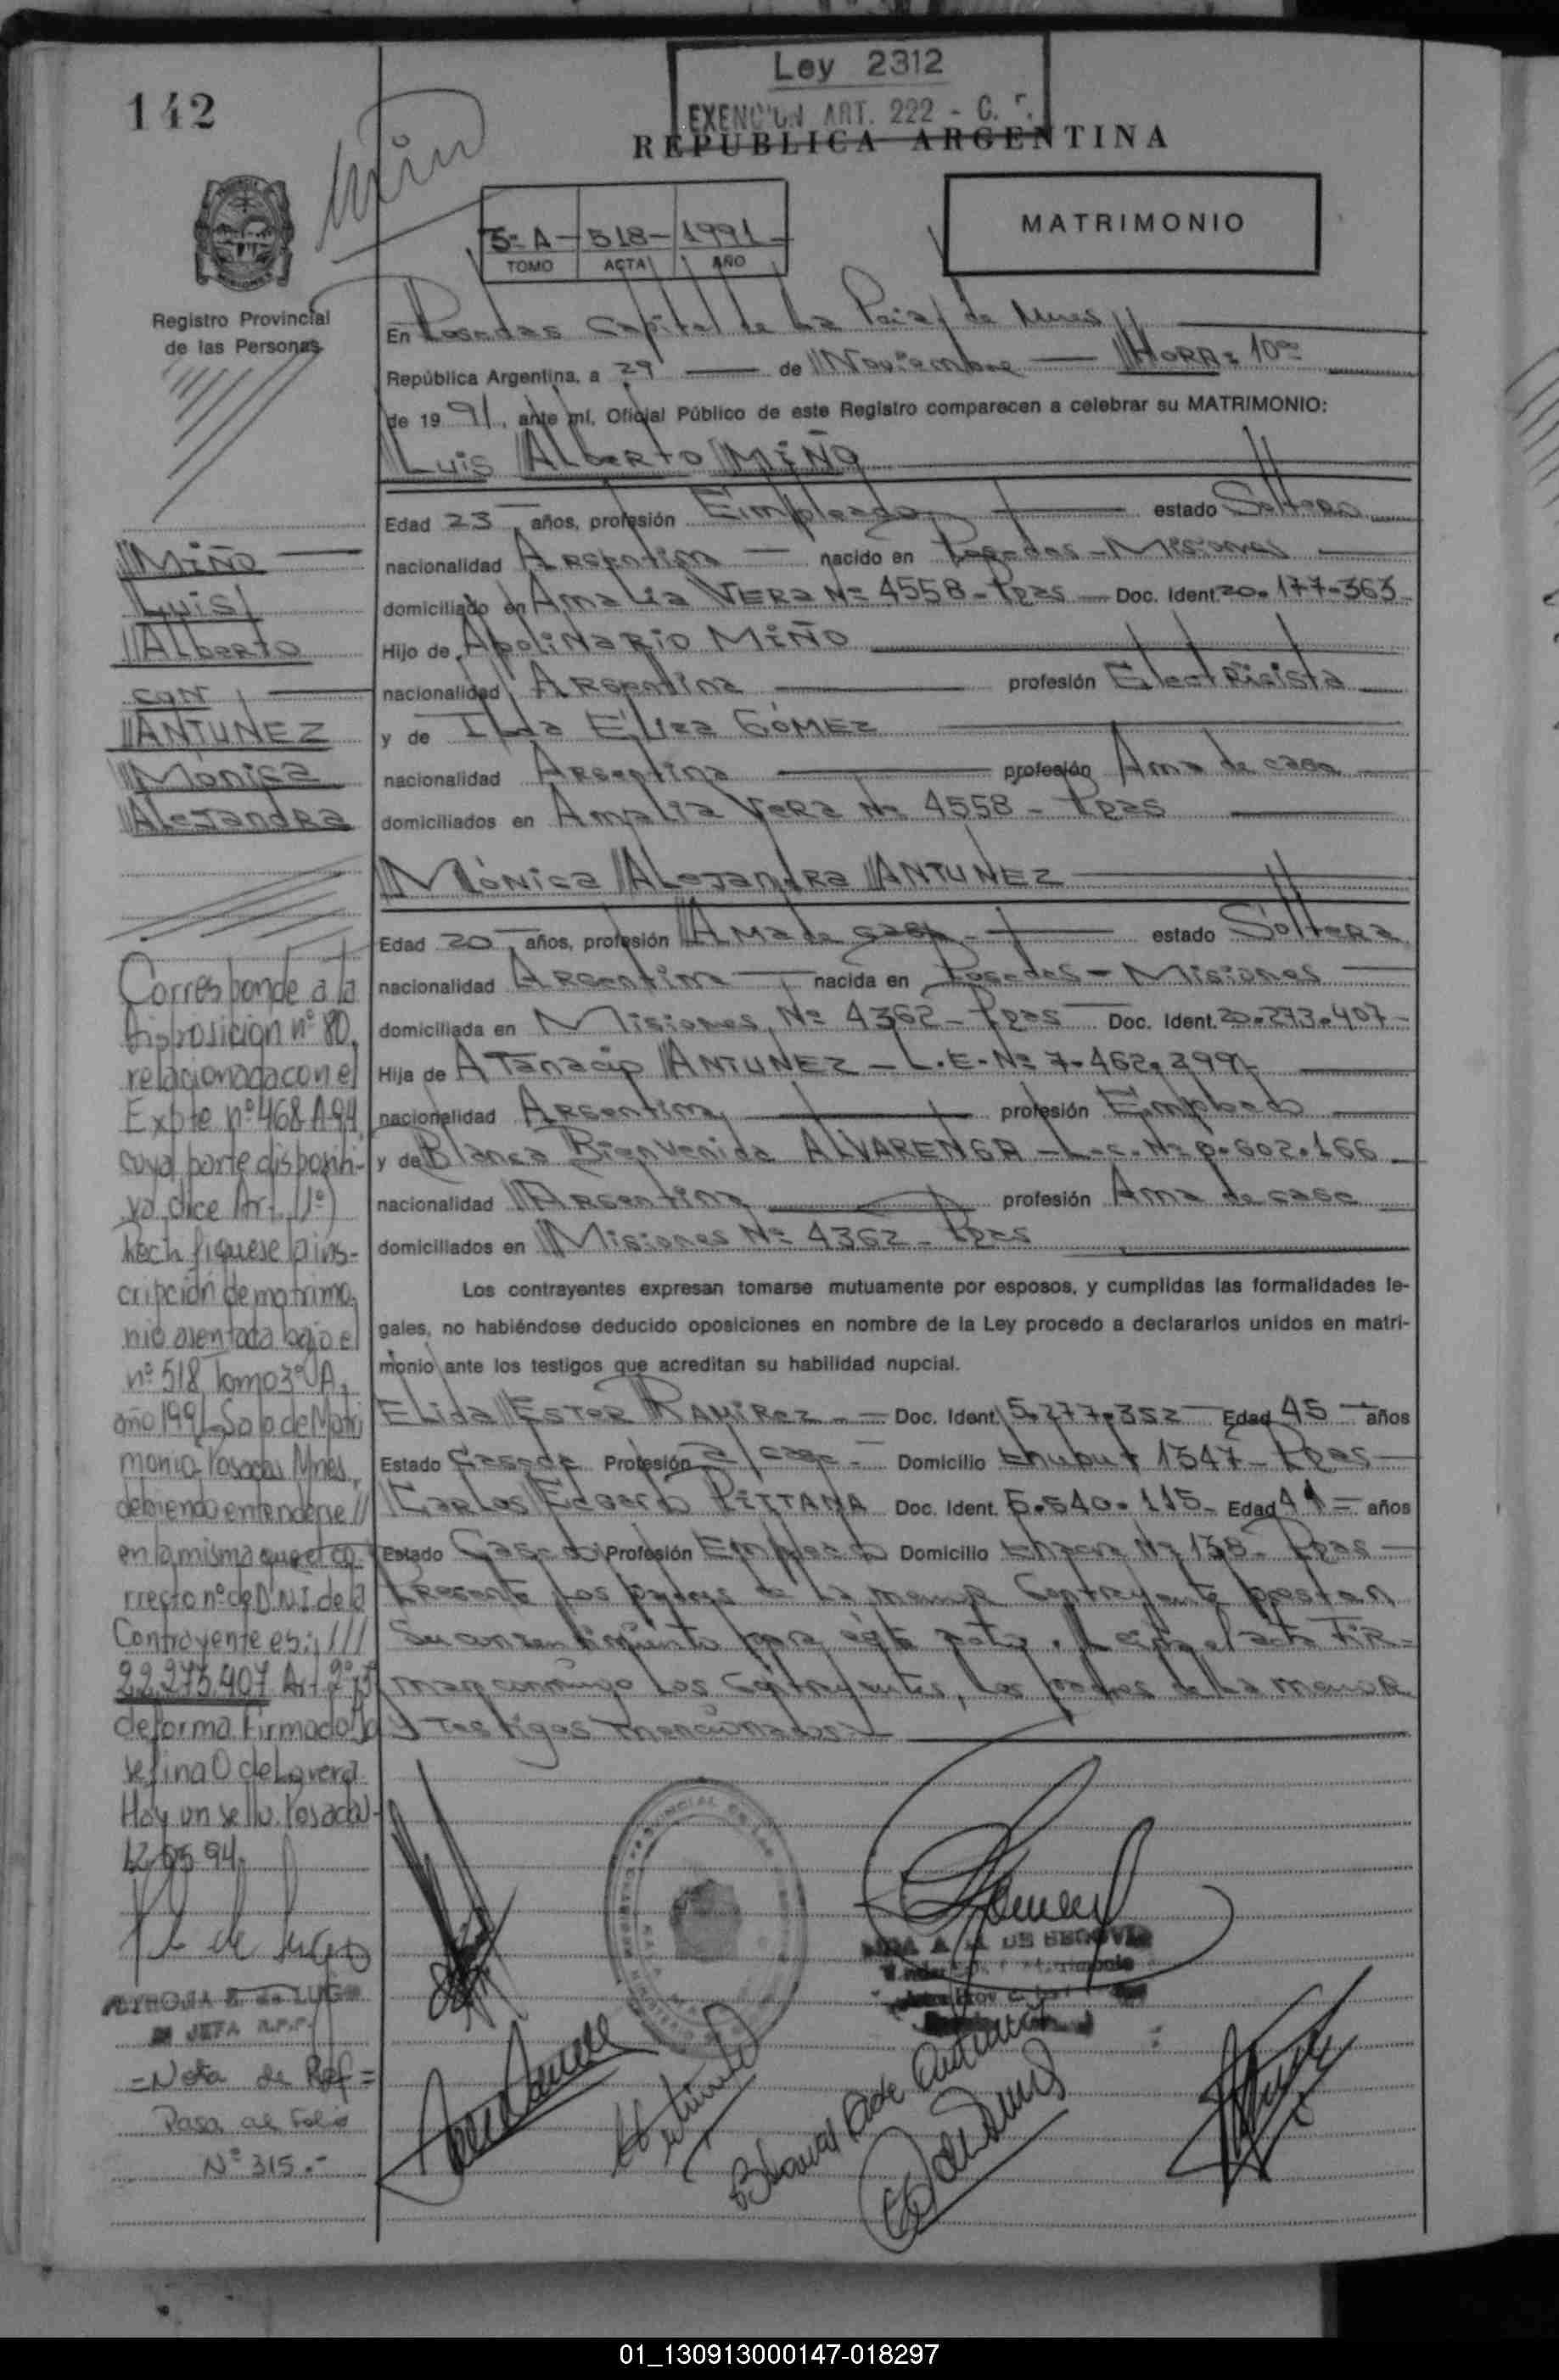 142
Ley 2312
EXENCION ART. 222 - C. F.
REPUBLICA ARGENTINA
Miño
3º A - 518 - 1991 -
TOMO ACTA AÑO
MATRIMONIO
Registro Provincial
de las Personas
En Posadas Capital de La Pcia/ de Mnes
República Argentina, a 29 de Noviembre HORA: 10
de 1991, ante mí, Oficial Público de este Registro comparecen a celebrar su MATRIMONIO:
Luis Alberto MIÑO
Edad 23 años, profesión Empleado estado Soltero
nacionalidad Argentina nacido en Posadas - Misiones
domiciliado en Amalia VERA Nº 4558 - Pdas Doc. Ident. 20.177.363
Hijo de Apolinario MIÑO
nacionalidad Argentina profesión Electricista
y de Ilda Eliza GÓMEZ
nacionalidad Argentina profesión Ama de casa
domiciliados en Amalia Vera Nº 4558 - Pdas
Mónica Alejandra ANTUNEZ
Edad 20 años, profesión Ama de casa estado Soltera
nacionalidad Argentina nacida en Posadas - Misiones
domiciliada en Misiones Nº 4362 - Pdas Doc. Ident. 20.273.407
Hija de ATanacio ANTUNEZ - L.E. Nº 7.462.299
nacionalidad Argentina profesión Empleado
y de Blanca Bienvenida ALVARENGA - L.c. Nº 0.602.166
nacionalidad Argentina profesión Ama de casa
domiciliados en Misiones Nº 4362 - Pdas
Los contrayentes expresan tomarse mutuamente por esposos, y cumplidas las formalidades le-
gales, no habiéndose deducido oposiciones en nombre de la Ley procedo a declararlos unidos en matri-
monio ante los testigos que acreditan su habilidad nupcial.
Elida Ester RAMIREZ Doc. Ident. 5.277.352 Edad 45 años
Estado Casada Profesión a/ casa Domicilio Chubut 1347 - Pdas
Carlos Edgardo PITTANA Doc. Ident. 5.540.115 Edad 41 años
Estado Casado Profesión Empleado Domicilio Chacra Nº 138 - Pdas
Presente los padres de la menor Contrayente prestan
su consentimiento para este acto. Leida el acta FIR-
man conmigo los contrayentes, los padres de la menor
y testigos mencionados
MIÑO
Luis
Alberto
con
ANTUNEZ
Monica
Alejandra
Corresponde a la
Disposicion nº 80,
relacionada con el
Expte nº 468 A 94,
cuya parte dispositi-
va dice Art. (1º)
Rectifiquese la ins-
cripción de matrimo-
nio asentada bajo el
nº 518 Tomo 3º A,
año 1991 Sala de Matri
monio Posadas Mnes.,
debiendo entenderse //
en la misma que el co-
rrecto nº de D.N.I de la
Contrayente es: ///
22.273.407 Art 2º)
de forma. Firmado Jo
sefina O de Lovera
Hay un sello. Posadas
12 05 94.
DE LUGO
JEFA R.P.P.
= Nota de Ref =
Pasa al Folio
Nº 315.-
DE SEGOVIA
Blanca A de Antunez
01_130913000147-018297